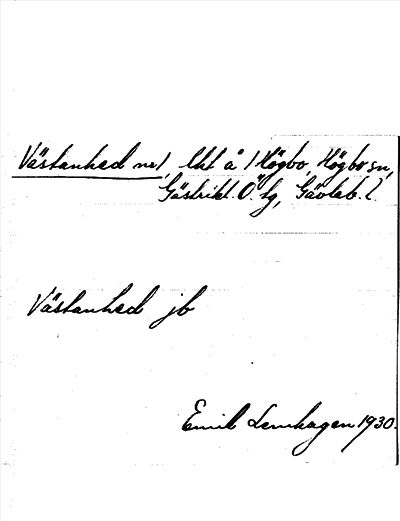 Västanhed nr 1, lht å 1 Högbo, Högbo sn,
Gästrikl. Ö. tg, Gävleb. l.
Västanhed jb
Emil Lennhagen 1930.